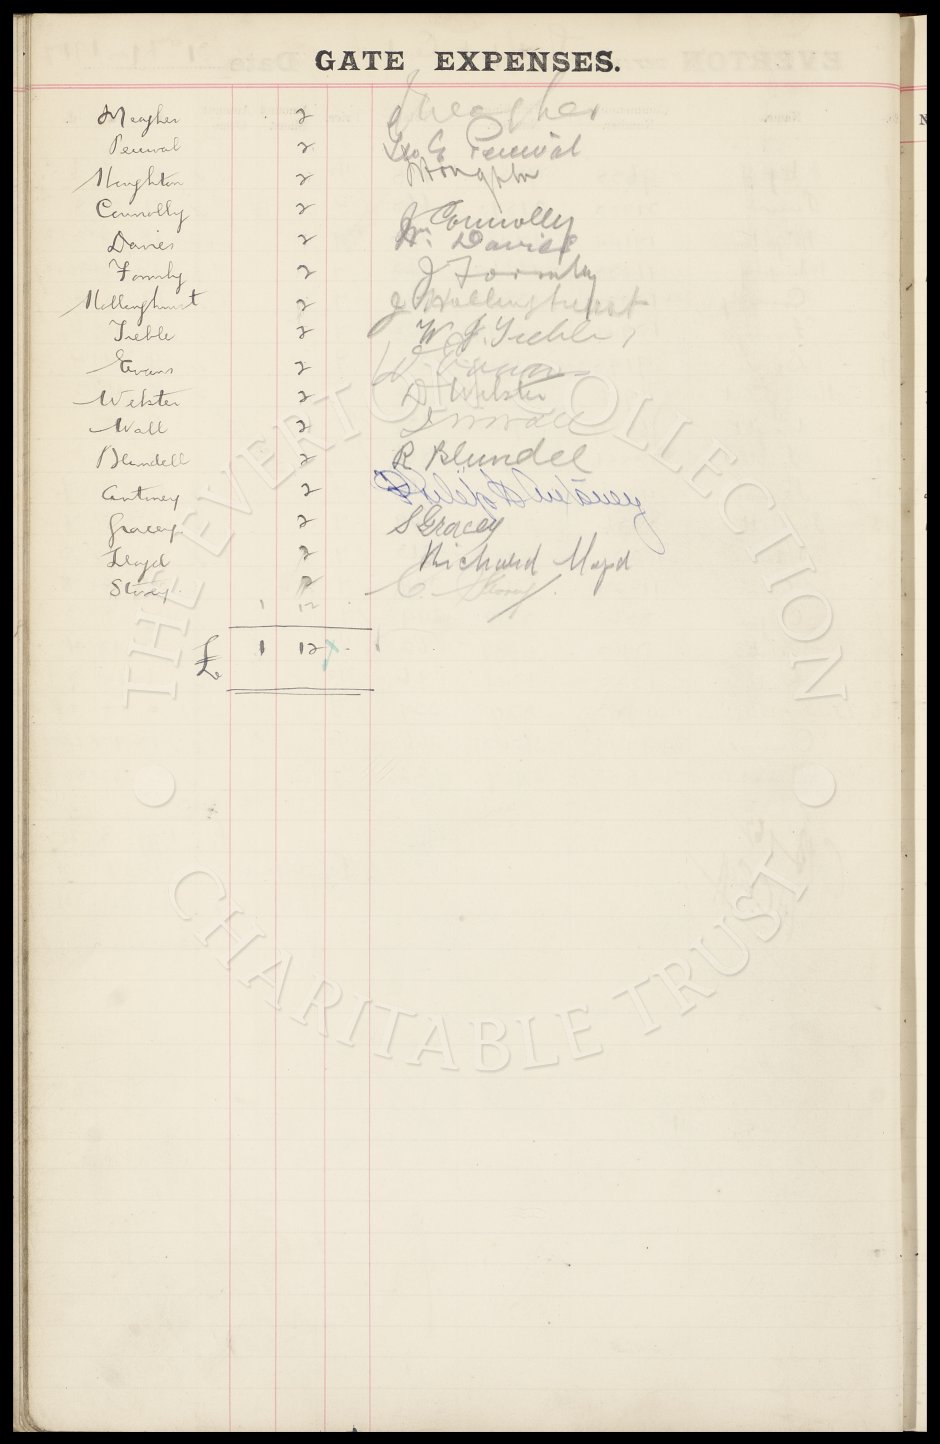 GATE EXPENSES.
Meagher 2 Meagher
Percival 2 Geo G Percival
Houghton 2 Houghton
Connolly 2 J Connolly
Davies 2 Wm Davies
Formby 2 J Formby
Hollinghurst 2 J Hollinghurst
Treble 2 W. J. Treble
Evans 2 Evans
Webster 2 D Webster
Wall 2 Wall
Blundell 2 R Blundell
Cantiney 2 Philip
Gracey 2 S Gracey
Lloyd 2 Richard Lloyd
Storey 2 C. Storey
1 12
£ 1 12
THE EVERTON COLLECTION
CHARITABLE TRUST